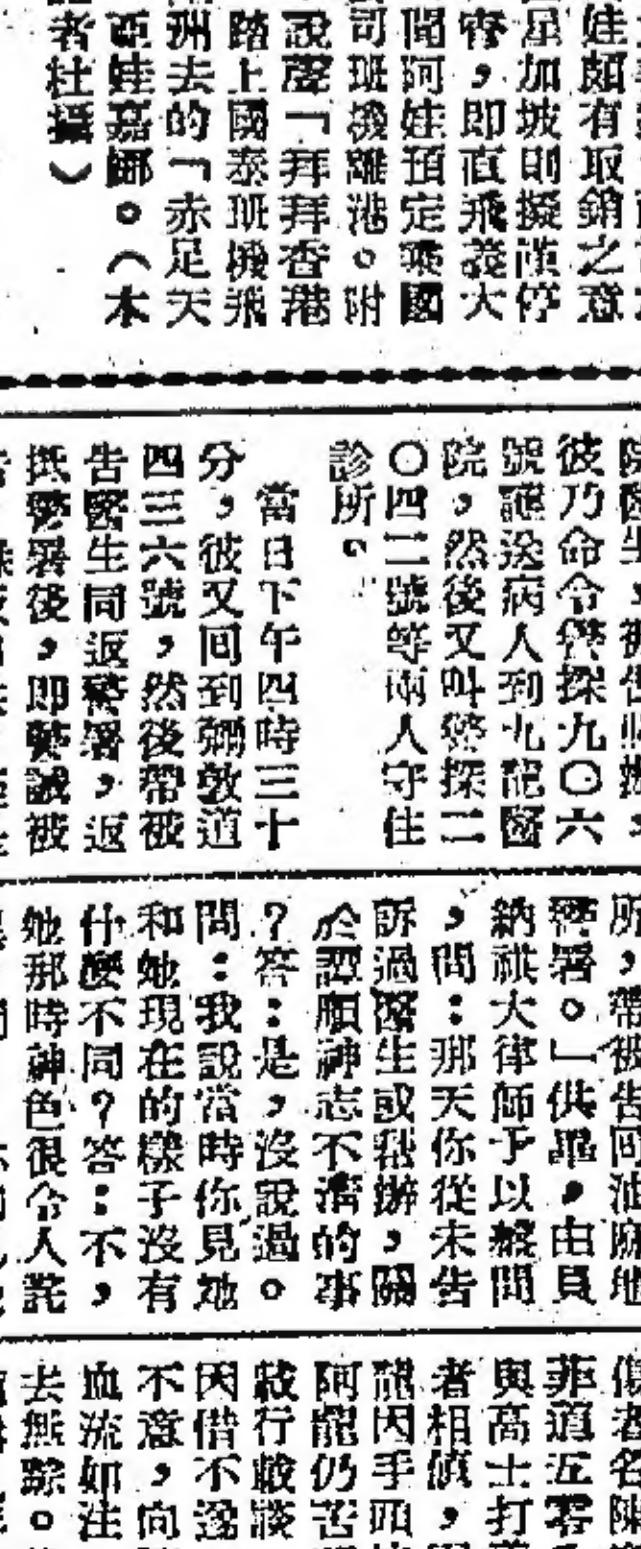 娃頗有取銷之意
星加坡則擬僅停
宵，即直飛義大
聞阿娃預定乘國
司班機離港。附
說聲「拜拜香港
踏上國泰班機飛
洲去的「赤足天
亞娃嘉娜。（本
者杜攝）
彼乃命令警探九〇六
號護送病人到九龍醫
院，然後又叫警探二
〇四二號等兩人守住
診所。
當日下午四時三十
分，彼又回到彌敦道
四三六號，然後帶被
告醫生同返警署，返
抵警署後，即警誡被
所，帶被告回油麻地
警署。」供畢，由貝
納祺大律師予以盤問
，問：那天你從未告
訴過醫生或幫辦，關
於譚順神志不清的事
？答：是，沒說過。
問：我說當時你見她
和她現在的樣子沒有
什麼不同？答：不，
她那時神色很令人詫
傷者名陳
菲道五零
與高士打
者相偵，
龍因手頭
阿龍仍苦
截行
因借不遂
不意，向
血流如注
去無踪。